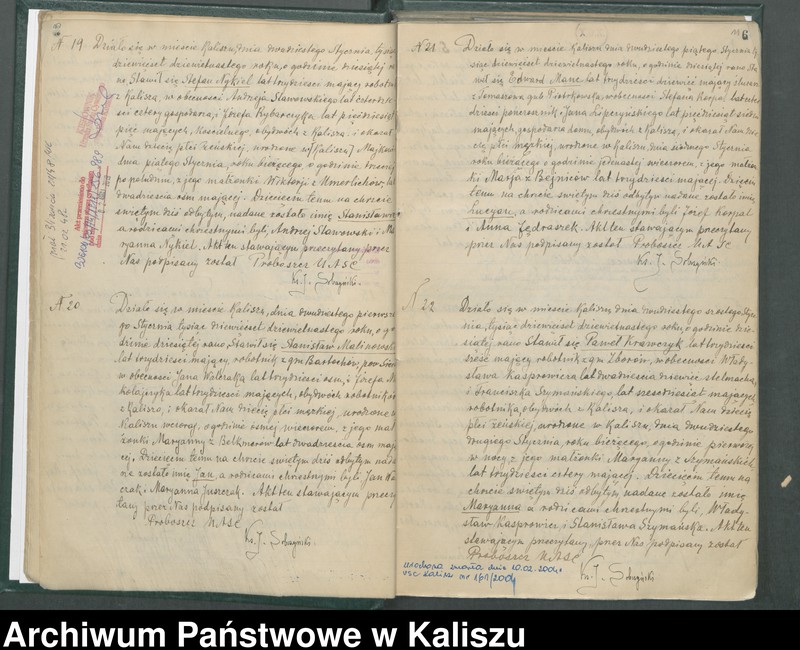 N 19 Działo się w mieście Kaliszu, dnia dwudziestego Stycznia, tysiąc
dziewięćset dziewiętnastego roku, o godzinie dziesiątej ra-
no Stawił się Stefan Nykiel lat trzydzieści mający robotnik
z Kalisza, w obecności Andrzeja Sławowskiego lat czterdzie-
ści cztery gospodarza, i Józefa Rybarczyka lat pięćdziesiąt
pięć mających, Kościelnego, obydwóch z Kalisza i okazał
Nam dziecię płci żeńskiej, urodzone w Kaliszu
dnia piątego Stycznia, roku bieżącego, o godzinie trzeciej
po południu, z jego małżonki Wiktorji z
dwadzieścia ośm mającej. Dziecięciu temu na chrzcie
świętym dziś odbytym, nadane zostało imię Stanisława
a rodzicami chrzestnymi byli, Andrzej Sławowski i Ma-
ryanna Nykiel. Akt ten stawającym przeczytany przez
Nas podpisany został Proboszcz U.A.S.C.
Ks. J. Sobczyński
N 20
Działo się w mieście Kaliszu, dnia dwudziestego pierwsze-
go Stycznia tysiąc dziewięćset dziewiętnastego roku, o go-
dzinie dziesiątej rano Stawił się Stanisław Malinowski
lat trzydzieści mający, robotnik z gm Bartochów, pow.
w obecności Jana Walczaka lat trzydzieści ośm, i Józefa Mi-
kołajczyka lat trzydzieści mających, obydwóch robotników
z Kalisza, i okazał Nam dziecię płci męzkiej, urodzone w
Kaliszu wczoraj, o godzinie ósmej wieczorem, z jego mał-
żonki Maryanny z lat dwadzieścia ośm mają-
cej. Dziecięciu temu na chrzcie świętym dziś odbytym nada-
ne zostało imię Jan, a rodzicami chrzestnymi byli, Jan Wal-
czak, Maryanna Juszczak. Akt ten stawającym przeczy-
tany przez Nas podpisany został
Proboszcz U.A.S.C.
Ks. J. Sobczyński
6
N 21
Działo się w mieście Kaliszu dnia dwudziestego piątego Stycznia ty-
siąc dziewięćset dziewiętnastego roku, o godzinie dziesiątej rano Sta-
wił się Edward Manc lat trzydzieści dziewięć mający
z Tomaszowa gub Piotrkowska, w obecności Stefana Korpal
i Jana
mających, gospodarza domu, obydwóch z Kalisza, i okazał Nam dzie-
cię płci męzkiej, urodzone w Kaliszu, dnia siódmego Stycznia
roku bieżącego o godzinie jedenastej wieczorem, z jego małżon-
ki Marja z lat trzydzieści mającej. Dziecię-
temu na chrzcie świętym dziś odbytym nadane zostało imię
Lucyan, a rodzicami chrzestnymi byli Józef Korpal
i Anna Jędraszek. Akt ten stawającym przeczytany
przez Nas podpisany został Proboszcz U.A.S.C.
Ks. J. Sobczyński
N 22
Działo się w mieście Kaliszu, dnia dwudziestego szóstego Stycz-
nia, tysiąc dziewięćset dziewiętnastego roku, o godzinie dzie-
siątej, rano Stawił się Paweł Krawczyk lat trzydzieści
sześć mający robotnik z gm Zborów, w obecności Włady-
sława Kasprowicza lat dwadzieścia dziewięć stelmacha,
i Franciszka Szymańskiego, lat sześćdziesiąt mających
robotnika, obydwóch z Kalisza, i okazał Nam dziecię
płci żeńskiej, urodzone w Kaliszu, dnia dwudziestego
drugiego Stycznia, roku bieżącego, o godzinie pierwszej
w nocy, z jego małżonki Maryanny z Szymańskich
lat trzydzieści cztery mającej. Dziecięciu temu na
chrzcie świętym dziś odbytym nadane zostało imię
Maryanna a rodzicami chrzestnymi byli, Włady-
sław Kasprowicz, i Stanisława Szymańska. Akt ten
stawającym przeczytany, przez Nas podpisany został
Proboszcz U.A.S.C.
Ks. J. Sobczyński
urodzona zmarła dnia 10.02.2004
USC Kalisz nr 161/2004
Archiwum Państwowe w Kaliszu